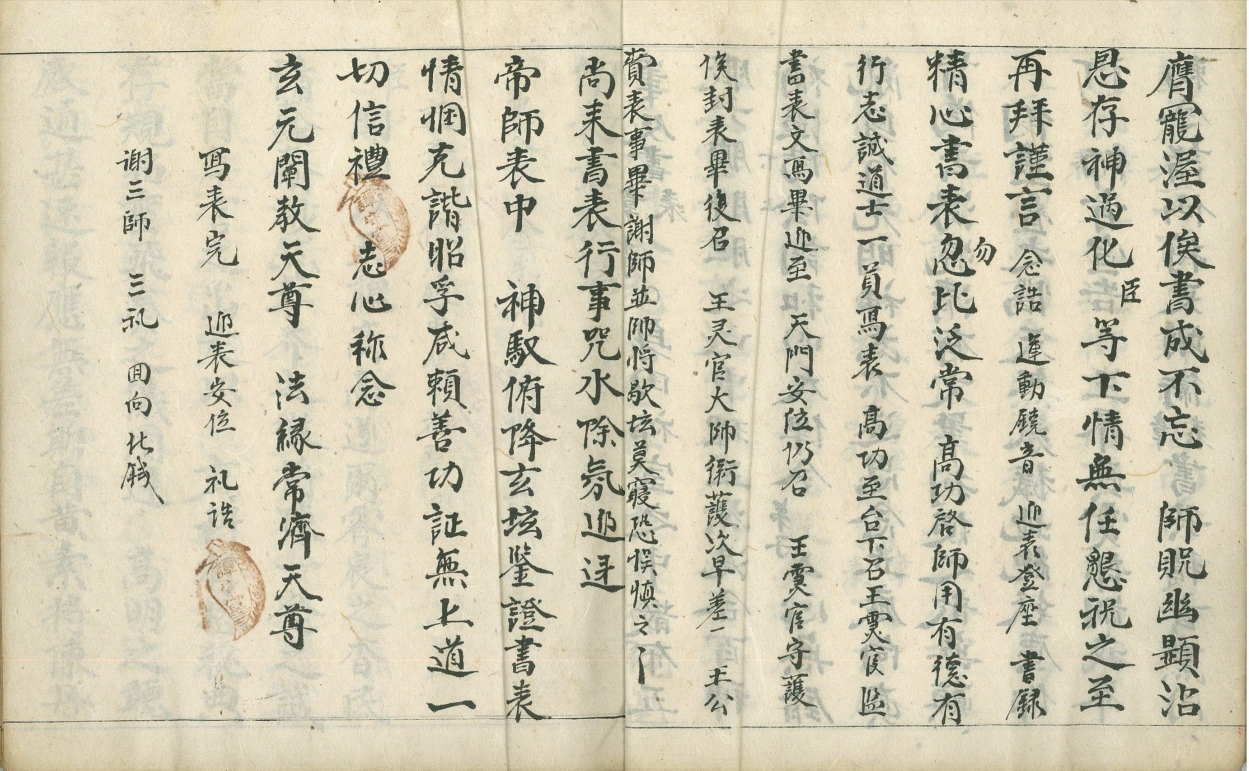 膺寵渥以俟書成不忘　師貺幽顯沾
恩存神過化臣等下情無任懇祝之至
再拜謹言　念誥　運動鐃音　迎表登座　書録
精心書表忽勿比泛常　高功啓師用有德有
行志誠道士一員寫表　高功至台下召王灵官監
書表文寫畢迎至　天門安位仍召　王灵官守護
俟封表畢復召　王灵官大師衛護次早差一　王公
賫表事畢謝師並師將歇坛莫寢恐悮慎之
尚来書表行事咒水除氛迎迓
帝師表中　神馭俯降玄坛鑒證書表
情悃克諧昭孚咸賴善功証無上道一
切信禮　志心称念
玄元闡教天尊　法緣常濟天尊
寫表完　迎表安位　礼誥
謝三師　三礼　回向化戝